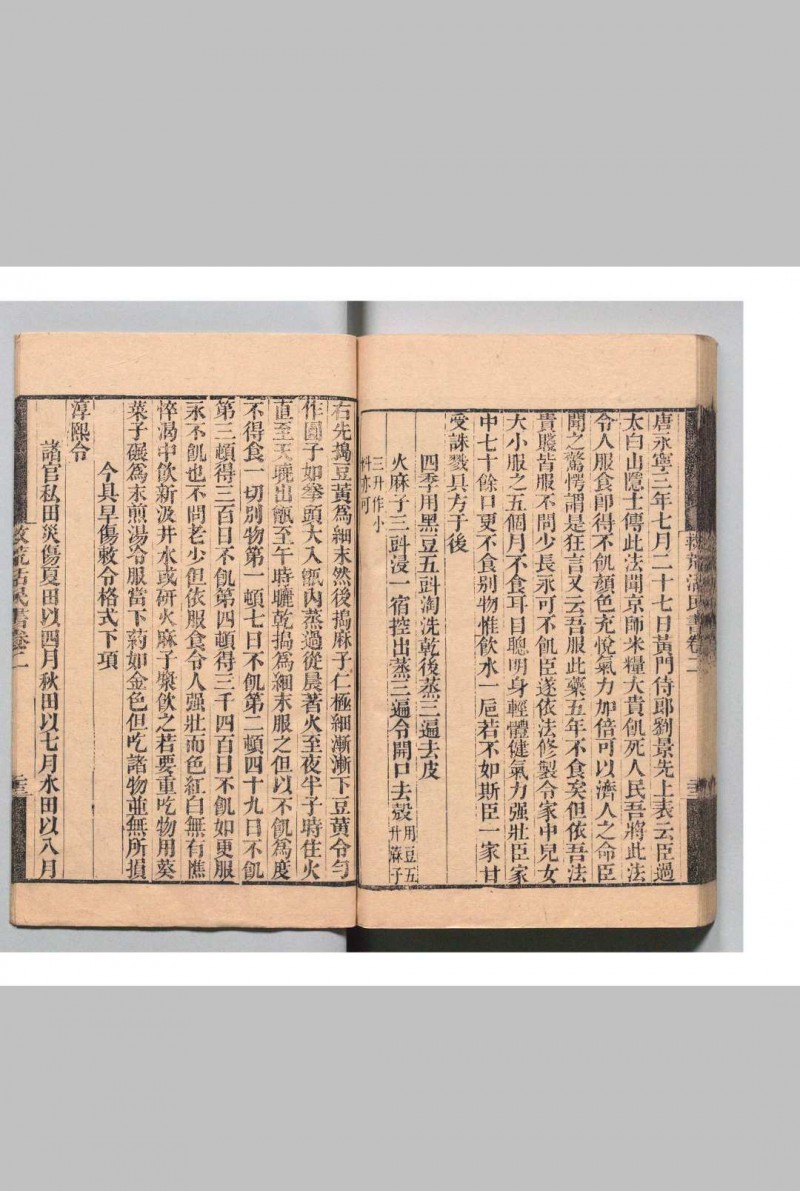 唐永寧三年七月二十七日黃門侍郎劉景先上表云臣過
太白山隱士傳此法聞京師米糧大貴飢死人民吾將此法
令人服食卽得不飢顏色充悅氣力加倍可以濟人之命臣
聞之驚愕謂是狂言又云吾服此藥五年不食矣但依吾法
貴賤皆服不問少長永可不飢臣遂依法修製令家中兒女
大小服之五個月不食耳目聰明身輕體健氣力强壯臣家
中七十餘口更不食别物惟飲水一巵若不如斯臣一家甘
受誅戮具方于後
四季用黑豆五㪷淘洗乾後蒸三遍去皮
火麻子三㪷浸一宿控出蒸三遍令開口去殼用豆五
升蔴子
三升作小
料亦可
救荒活民書卷二
二十二
右先搗豆黃爲細末然後搗麻子仁極細漸漸下豆黃令勻
作團子如拳頭大入甑內蒸過從晨著火至夜半子時住火
直至天曉出甑至午時曬乾搗爲細末服之但以不飢爲度
不得食一切别物第一頓七日不飢第二頓四十九日不飢
第三頓得三百日不飢第四頓得三千四百日不飢如更服
永不飢也不問老少但依服食令人强壯而色紅白無有憔
悴渴中飲新汲井水或研火麻子漿飲之若要重吃物用葵
菜子碾爲末煎湯冷服當下葯如金色但吃諸物並無所損
今具旱傷敕令格式下項
淳熙令
諸官私田災傷夏田以四月秋田以七月水田以八月
救荒活民書卷二
二十三